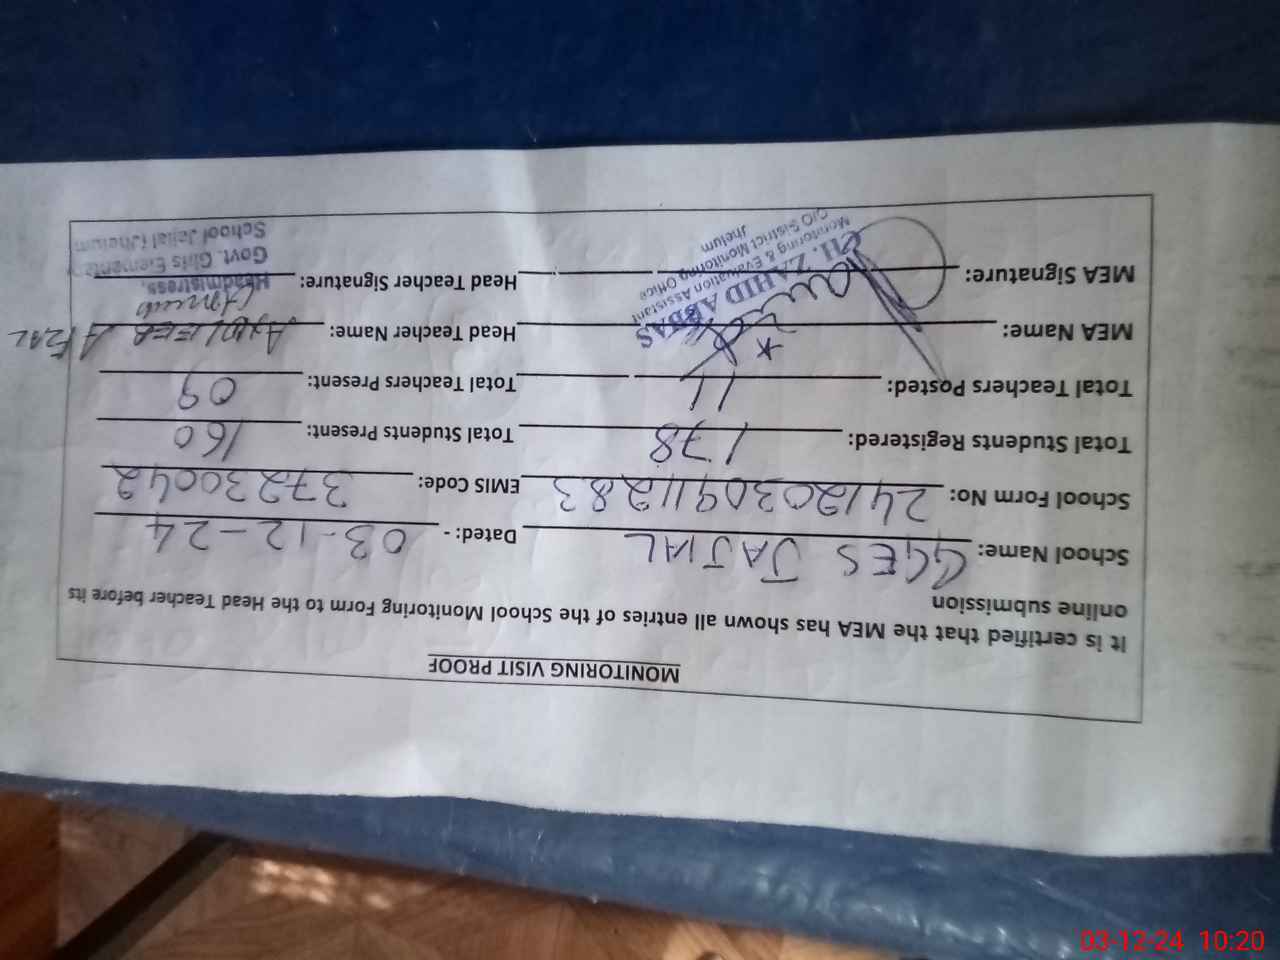 MONITORING VISIT PROOF
It is certified that the MEA has shown all entries of the School Monitoring Form to the Head Teacher before its
online submission
School Name: GGES JAJIAL Dated: - 03-12-24
School Form No: 2412030911283 EMIS Code: 37230042
Total Students Registered: 178 Total Students Present: 160
Total Teachers Posted: 11 Total Teachers Present: 09
MEA Name: Head Teacher Name: AFZAL
MEA Signature: Head Teacher Signature:
CH. ZAHID ABBAS
Monitoring & Evaluation Assistant
O/O District Monitoring Office
Jhelum
Headmistress,
Govt. Girls Elementary
School Jajial (Jhelum
03-12-24 10:20